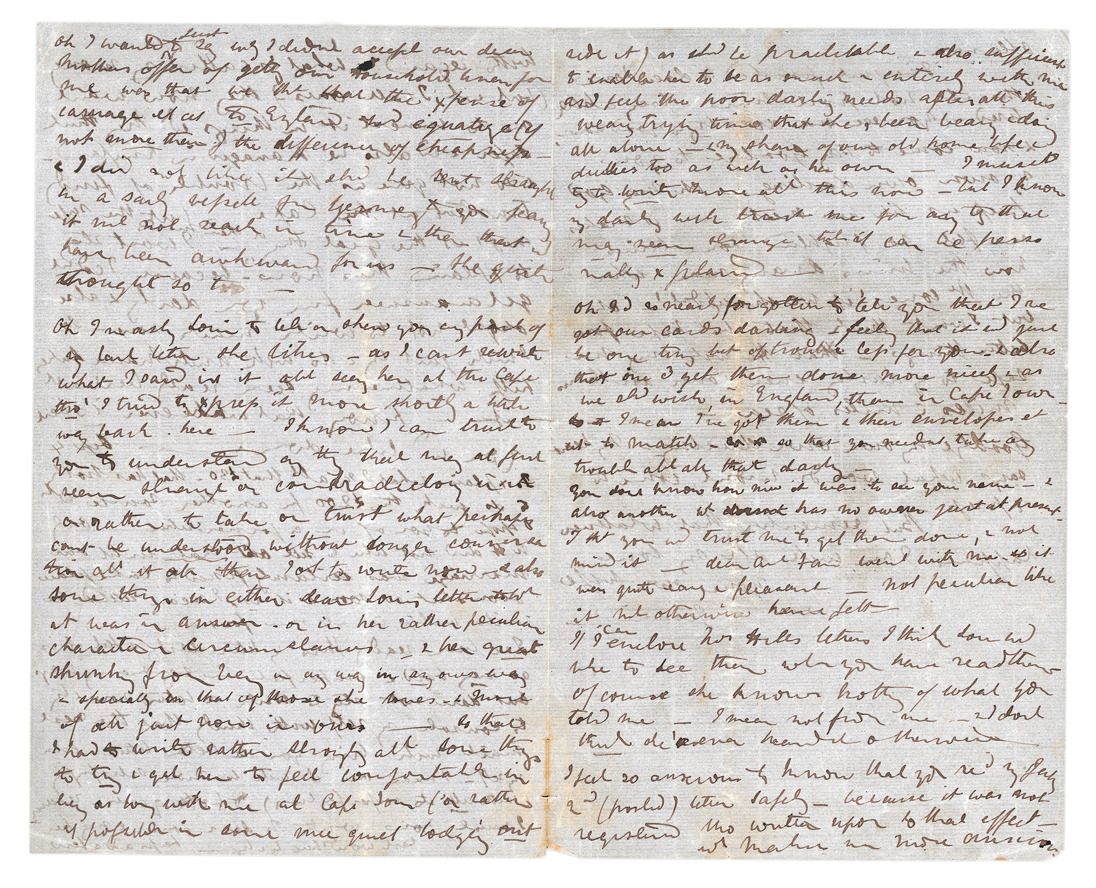 oh I wanted just to say why I didnt accept our dear
Mothers offer of getg our household linen for
me was that we tht that the 'xpense of
carriage et ct to England wd equalize if
not more than the difference of cheapness —
& I did not like it shd be sent straight
in a saily vessel for it
it mt not reach in time & then that
have been awkward for us — She quite
thought so to —
Oh I nearly to tell or shew you my part of
my last letter she likes — as I cant rewrite
what I said in it abt seeg her at the Cape
tho' I tried to 'xpress it more shortly a little
way back here — I know I can trust to
you to understand any thg that may at first
seem strange or contradictory in it
or rather to take on trust what perhaps
cant be understood without longer conversa
tion abt it all than I ought to write now & also
some things in either dear Louis letter to wh
it was in answer — or in her rather peculiar
character & circumstances — & her great
shrinkg from beig in any way in anyones way
— specially in that of those she loves & most
of all just now in ours — so that
I had to write rather strongly abt some thgs
to try & get her to feel comfortable in
beig as by with me (at Cape Town (or rather
if possible in some nice quiet lodgg out
side it) as shd be practicable & also sufficient
to enable her to be as much & entirely with me
as I feel the poor darling needs after all this
weary trying time that she's been bearg & doing
all alone — & my share of our old home life &
duties too as well as her own — I must
try to write more abt this now — but I know
my darlg will trust me for any thg that
may seem strange till it can be perso
nally 'xplained —
Oh I'd so nearly forgotten to tell you that I've
got our cards darling — I feel that it wd just
be one thg of trouble less for you — & also
that one I get them done more nicely & as
we shd wish in England than in Cape Town —
I mean I've got them & their envelopes et
ct to match — so that you needn't take any
trouble abt all that darlg —
You dont know how nice it was to see your name — &
also another wh has no owner just at present
I tht you wd trust me to get them done, & not
mind it — dear Aunt Fan went with me so it
was quite easy & pleasant — not peculiar like
it mt otherwise have felt
If I can enclose Mrs Hills letters I think Lou wd
like to see them when you have read them —
of course she knows nothg of what you
told me — I mean not from me — & I dont
think she's ever heard it otherwise —
I feel so anxious to know that you recd my
2nd (posted) letter safely — because it was not
registered tho written upon to that effect —
wh makes me more anxious